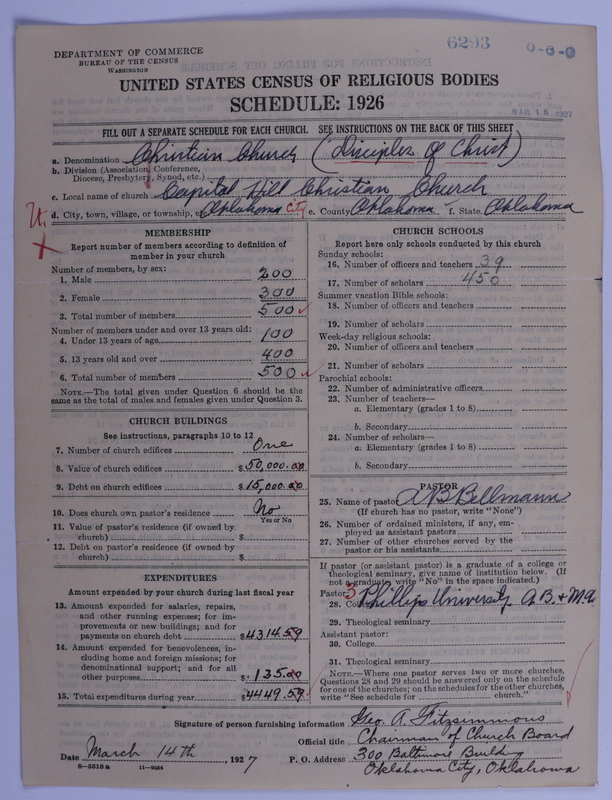 6293 0-6-0
DEPARTMENT OF COMMERCE
BUREAU OF THE CENSUS
WASHINGTON
UNITED STATES CENSUS OF RELIGIOUS BODIES
SCHEDULE: 1926
MAR 16 1927
FILL OUT A SEPARATE SCHEDULE FOR EACH CHURCH. SEE INSTRUCTIONS ON THE BACK OF THIS SHEET
a. Denomination Christian Church (Disciples of Christ)
b. Division (Association, Conference, Diocese, Presbytery, Synod, etc.)
c. Local name of church Capital Hill Christian Church
d. City, town, village, or township, etc. Oklahoma City e. County Oklahoma f. State Oklahoma
MEMBERSHIP
Report number of members according to definition of member in your church
Number of members, by sex:
1. Male 200
2. Female 300
3. Total number of members 500
Number of members under and over 13 years old:
4. Under 13 years of age 100
5. 13 years old and over 400
6. Total number of members 500
NOTE.—The total given under Question 6 should be the same as the total of males and females given under Question 3.
CHURCH BUILDINGS
See instructions, paragraphs 10 to 12
7. Number of church edifices One
8. Value of church edifices $50,000.00
9. Debt on church edifices $15,000.00
10. Does church own pastor's residence No
Yes or No
11. Value of pastor's residence (if owned by church) $
12. Debt on pastor's residence (if owned by church) $
EXPENDITURES
Amount expended by your church during last fiscal year
13. Amount expended for salaries, repairs, and other running expenses; for improvements or new buildings; and for payments on church debt $4314.59
14. Amount expended for benevolences, including home and foreign missions; for denominational support; and for all other purposes $135.00
15. Total expenditures during year $4449.59
CHURCH SCHOOLS
Report here only schools conducted by this church
Sunday schools:
16. Number of officers and teachers 39
17. Number of scholars 450
Summer vacation Bible schools:
18. Number of officers and teachers
19. Number of scholars
Week-day religious schools:
20. Number of officers and teachers
21. Number of scholars
Parochial schools:
22. Number of administrative officers
23. Number of teachers—
a. Elementary (grades 1 to 8)
b. Secondary
24. Number of scholars—
a. Elementary (grades 1 to 8)
b. Secondary
PASTOR
25. Name of pastor A B Bellmann
(If church has no pastor, write "None")
26. Number of ordained ministers, if any, employed as assistant pastors
27. Number of other churches served by the pastor or his assistants
If pastor (or assistant pastor) is a graduate of a college or theological seminary, give name of institution below. (If not a graduate, write "No" in the space indicated.)
Pastor:
28. Phillips University A B. & M.A.
29. Theological seminary
Assistant pastor:
30. College
31. Theological seminary
NOTE.—Where one pastor serves two or more churches, Questions 28 and 29 should be answered only on the schedule for one of the churches; on the schedules for the other churches, write "See schedule for church."
Signature of person furnishing information Geo. A. Fitzsimmons
Official title Chairman of Church Board
Date March 14th, 1927 P. O. Address 300 Baltimore Building
Oklahoma City, Oklahoma
8-5818a 11-9084